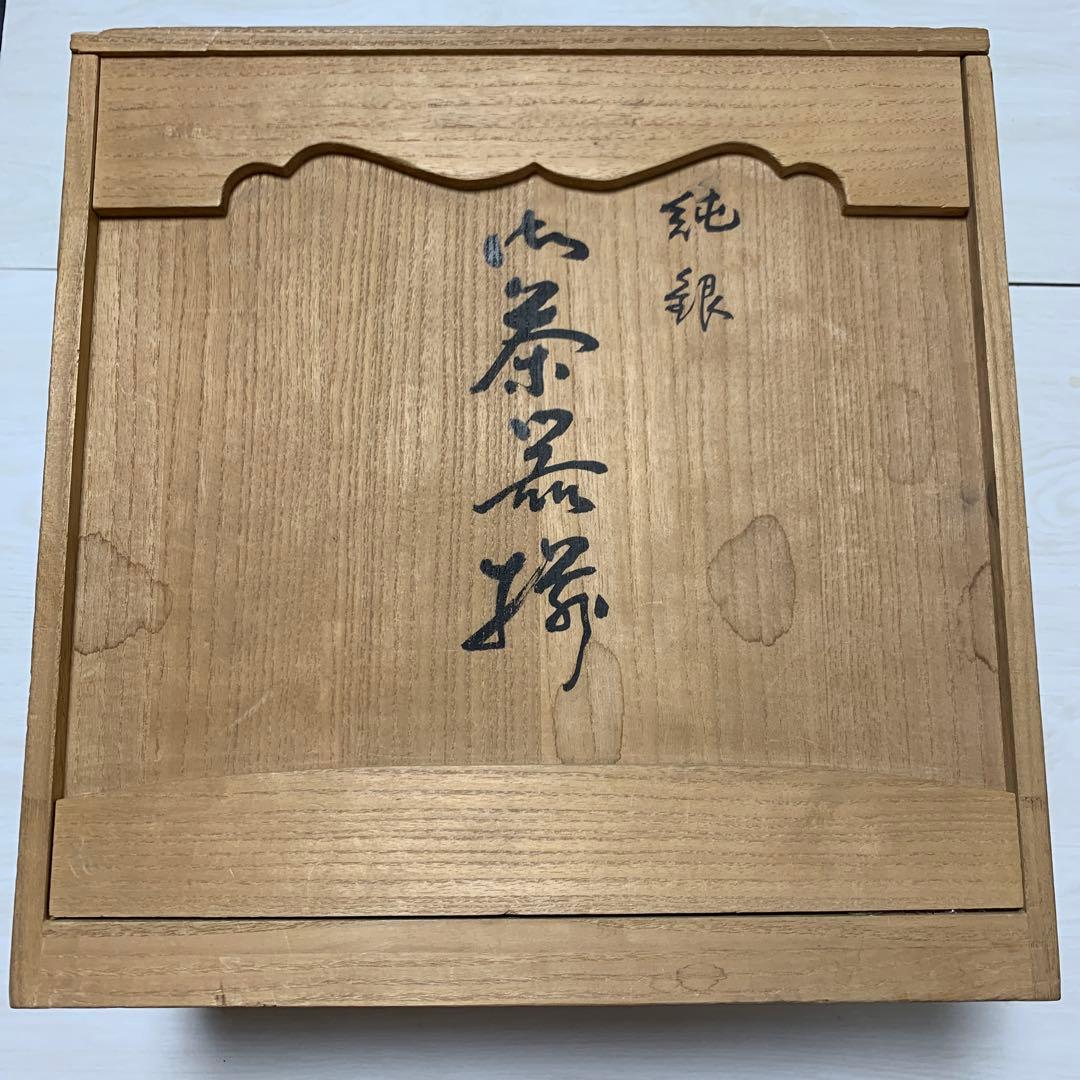 純銀
御茶器揃